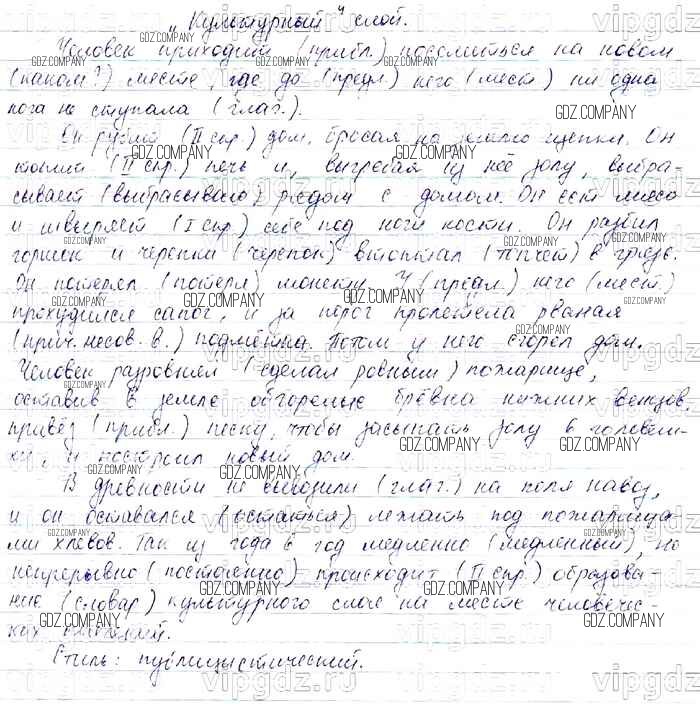 "Культурный" слой.
Человек приходит (прибл.) поселиться на новом
(каком?) месте, где до (предл.) него (мест) ни одна
нога не ступала (глаг.).
Он рубит (II спр.) дом, бросая на землю щепки. Он
топит (II спр.) печь и, выгребая из неё золу, выбра-
сывает (выбрасываю) рядом с домом. Он ест мясо
и швыряет (I спр) себе под ноги кости. Он разбил
горшок и черепки (черепок) втоптал (топчет) в грязь.
Он потерял (потеря) монету. У (предл.) него (мест.)
прохудился сапог, и за порог пролетела рваная
(прич. несов. в.) подмётка. Потом у него сгорел дом.
Человек разровнял (сделал ровным) пожарище,
оставив в земле обгорелые брёвна нижних венцов,
привёз (прибл.) песку, чтобы засыпать золу и головеш-
ки, и построил новый дом.
В древности не вывозили (глаг.) на поля навоз,
и он оставался (остаться) лежать под пожарища-
ми хлевов. Так из года в год медленно (медленный), но
непрерывно (постоянно) происходит (II спр.) образова-
ние (словар) культурного слоя на месте человечес-
ких
Стиль: публицистический.
GDZ.COMPANY
vipgdz.ru